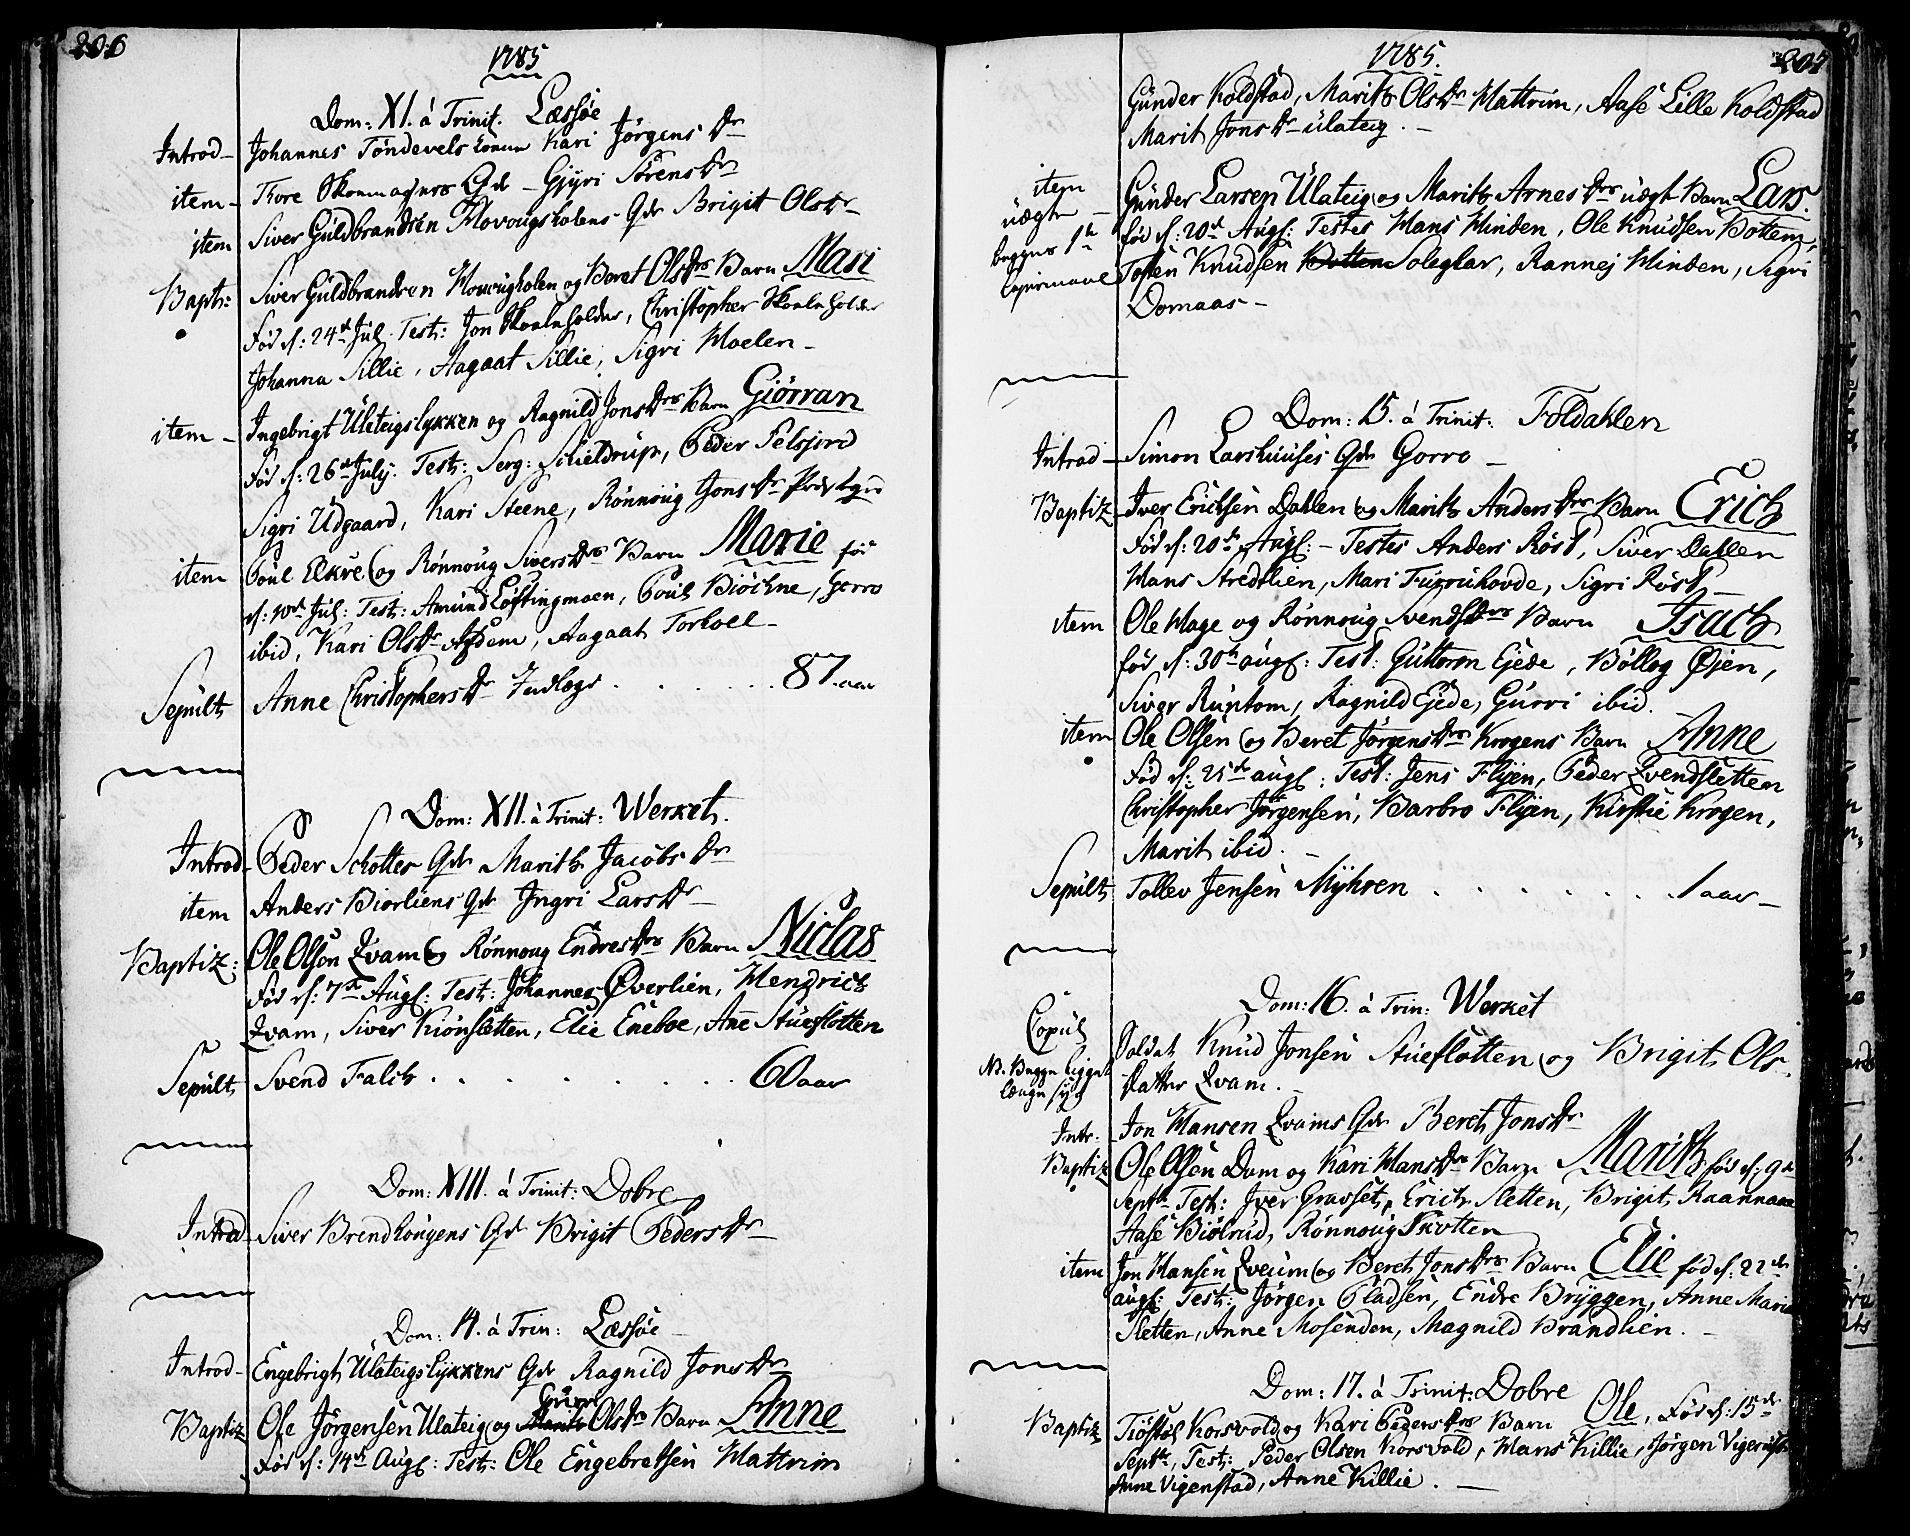 206
1785
Dom: XI. à Trinit. Læssøe
Introd– Johannes Tøndevels konne Kari Jørgens Dr
item– Tore Skomagers Qde – Gjyri Sørens Dr
item Siver Guldbrandsen Hovougholens Qde Brigit OlsDr
Bapt: Siver Guldbrandsen Hovougholen og Beret OlsDrs Barn Mari
Fød d: 24de Jul. Test: Jon Skoleholder, Christopher Skoleholder
Johanna Lillie, Aagaat Lillie, Sigri Moelen–
item – Ingebrigt Ulateigslykken og Ragnild JonsDrs Barn Giörran
Fød d: 26de July. Test: Serg: Schieldrup, Peder Selsjord
Sigri Udgaard, Kari Steene, Rønnoug Jons Dr
item Poul Ekre og Rønnoug Sivers Drs Barn Marie fød
d: 10de Jul: Test: Amund Løftingmoen, Poul Biøchne, Gorro
ibid, Kari OlsDr Afdem, Aagaat Torhoel–
Sepult Anne Christophers Dr Indlagt . . . . . . 87. aar
Dom: XII. à Trinit: Werket.
Introd– Peder Schotter Qde Marith Jacobs Dr
item Anders Biorliens Qde Ingri Lars Dr
Baptiz: Ole Olson Qvam og Rønnoug Endres Drs Barn Niclas
Fød d: 7de Aug: Test: Johannes Øverlien, Hendrich
Qvam, Siver Kiönsletten, Elie Eneboe, Anne Stueflotten
Sepult Svend Falch . . . . . . . . . 60 aar
Dom: XIII. à Trinit: Dobre
Introd– Siver Brendhougens Qde Brigit Peders Dr
Dom: 14. à Trin: Læssøe
Introd– Engebrigt Ulateigslykkens Qde Ragnild Jons Dr
Baptiz Ole Jørgensen Ulateig og Marith Guri OlsDrs Barn Anne
Fød d: 14de Aug: Test: Ole Engebretsen Mattrim
207
1785.
Gunder Koldstad, Marith OlsDr Mattrim, Aase Lille Koldstad
Marit JonsDr Ulateig. –
item uægte – Gunder Larsen Ulateig og Marith Arnes Drs uægte Barn Lars.
begges 1te fød d: 20de Aug: Testes Hans Hinden, Ole Knudsen Botten,
Leiermaal Tosten Knudsen Botten Soleglar, Rannej Hinden, Sigri
Domaas –
Dom: 15. à Trinit: Foldahlen
Introd– Simon Larshuuses Qde Gorro –
Baptiz Iver Erichsen Dahlen og Marith Anders Drs Barn Erich
Fød d: 20de Aug: – Testes Anders Røst, Siver Dahlen
Hans Stredtlien, Mari Furruhovde, Sigri Røst –
item Ole Hage og Rønnoug Svends Drs Barn Isach
fød d: 30te aug: Test: Guttorm Ejede, Bøllog Øjen,
Siver Runtom, Ragnild Ejede, Gurri ibid.
item Ole Olsen og Beret Jørgens Drs Krogens Barn Anne
Fød d: 25de aug: Test: Jens Flyen, Peder Qvendsletten
Christopher Jørgensen, Barbro Flyen, Kirstie Krogen,
Marit ibid. –
Sepult Tollev Jensen Myhren . . . . . . . 1 aar –
Dom: 16. à Trin: Werket
Copul Soldat Knud Jonsen Stueflotten og Brigit Ols-
NB. begge ligget længe syg datter Qvam. –
Intr: Jon Hansen Qvams Qde Beret Jons Dr
Baptiz Ole Olsen Dum og Kari Hans Drs Barn Marith fød d: 9de
Septbr Test: Iver Gravset, Erich Sletten, Brigit Raannaae
Aase Biölrud, Rønnoug Skotten
item Jon Hansen Qveum og Beret Jons Drs Barn Elie fød d: 22de
aug: Test: Jørgen Pladsen, Endre Bryggen, Anne Marie
Sletten, Anne Mosenden, Magnild Brandlien. –
Dom: 17. à Trinit: Dobre
Baptiz Tiøstel Korsvold og Kari Peders Drs Barn Ole, Fød d: 15de
Septbr, Test: Peder Olsen Korsvold, Hans Killie, Jørgen Vigenst
Anne Vigenstad, Anne Killie. –